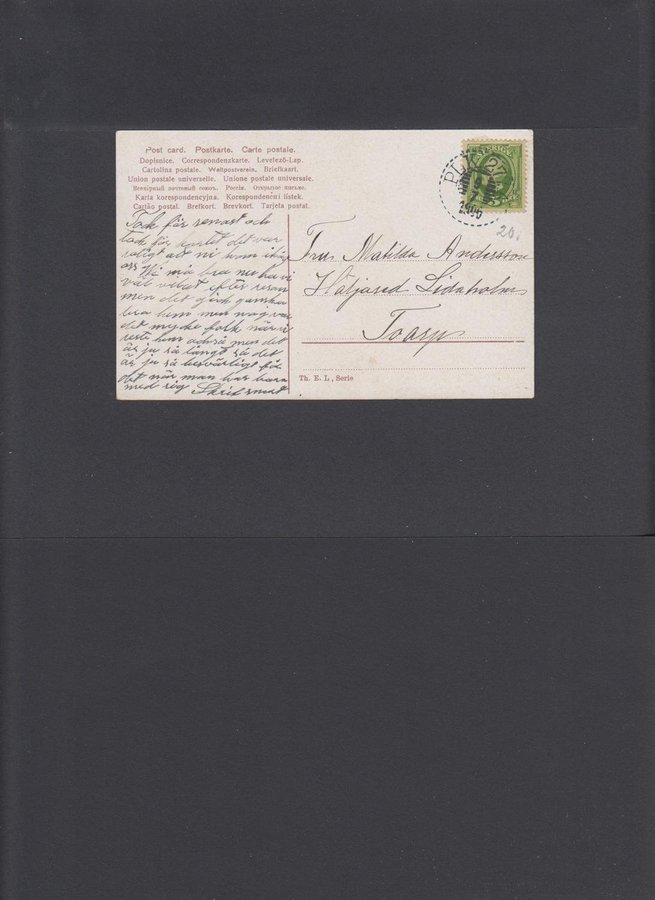 Post card. Postkarte. Carte postale.
Dopisnice. Correspondenzkarte. Levelező-Lap.
Cartolina postale. Weltpostverein. Briefkaart.
Union postale universelle. Unione postale universale.
Всемірный почтовый союзъ. Россія. Открытое письмо.
Karta korespondencyjna. Korespondenčni listek.
Cartão postal. Brefkort. Brevkort. Tarjeta postal.
SVERIGE
1906
20.
Tack för senast och
tack för kortet det var
roligt att ni kom ihåg
oss Wi må bra nu ha vi
väl vilat efter resan
men det gick ganska
bra hem men nog var
det mycke folk när vi
reste hem också men det
är ju så långt så det
är ju så besvärligt för
det när man har barn
med sig Skrif snart
Fru Matilda Andersson
Häljared Lidaholm
Toarp
Th. E. L., Serie